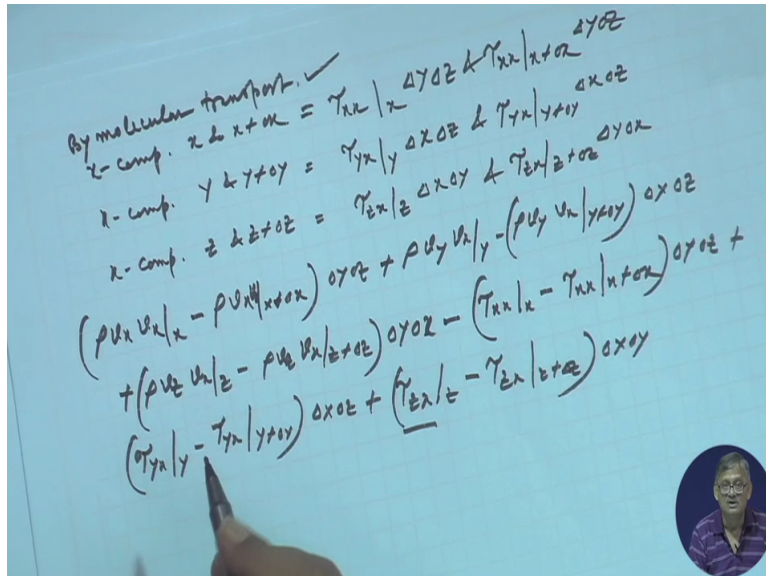 By molecular transport. ✓
x-comp. x & x+Δx = τxx|x ΔyΔz & τxx|x+Δx ΔyΔz
x-comp. y & y+Δy = τyx|y ΔxΔz & τyx|y+Δy ΔxΔz
x-comp. z & z+Δz = τzx|z ΔxΔy & τzx|z+Δz ΔyΔx
(ρvx vx|x − ρvx vx|x+Δx) ΔyΔz + ρvy vx|y − (ρvy vx|y+Δy) ΔxΔz
+ (ρvz vx|z − ρvz vx|z+Δz) ΔyΔx − (τxx|x − τxx|x+Δx) ΔyΔz +
(τyx|y − τyx|y+Δy) ΔxΔz + (τzx|z − τzx|z+Δz) ΔxΔy